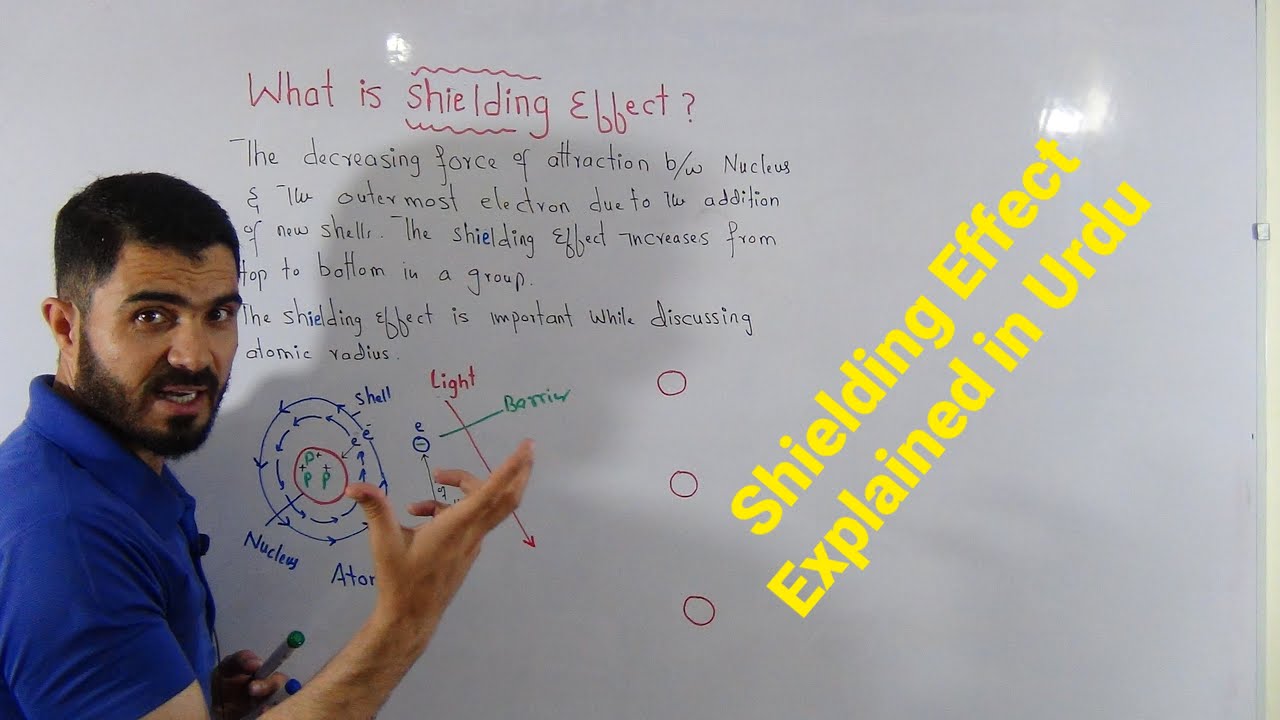 What is shielding Effect?
The decreasing force of attraction b/w Nucleus
& The outermost electron due to the addition
of new shells. The shielding Effect increases from
top to bottom in a group.
The shielding Effect is important while discussing
atomic radius.
Light
Barrier
shell
e
e⁻ e⁻
P+
+ +
P P
−
of
Nucleus
Ator
Shielding Effect
Explained in Urdu